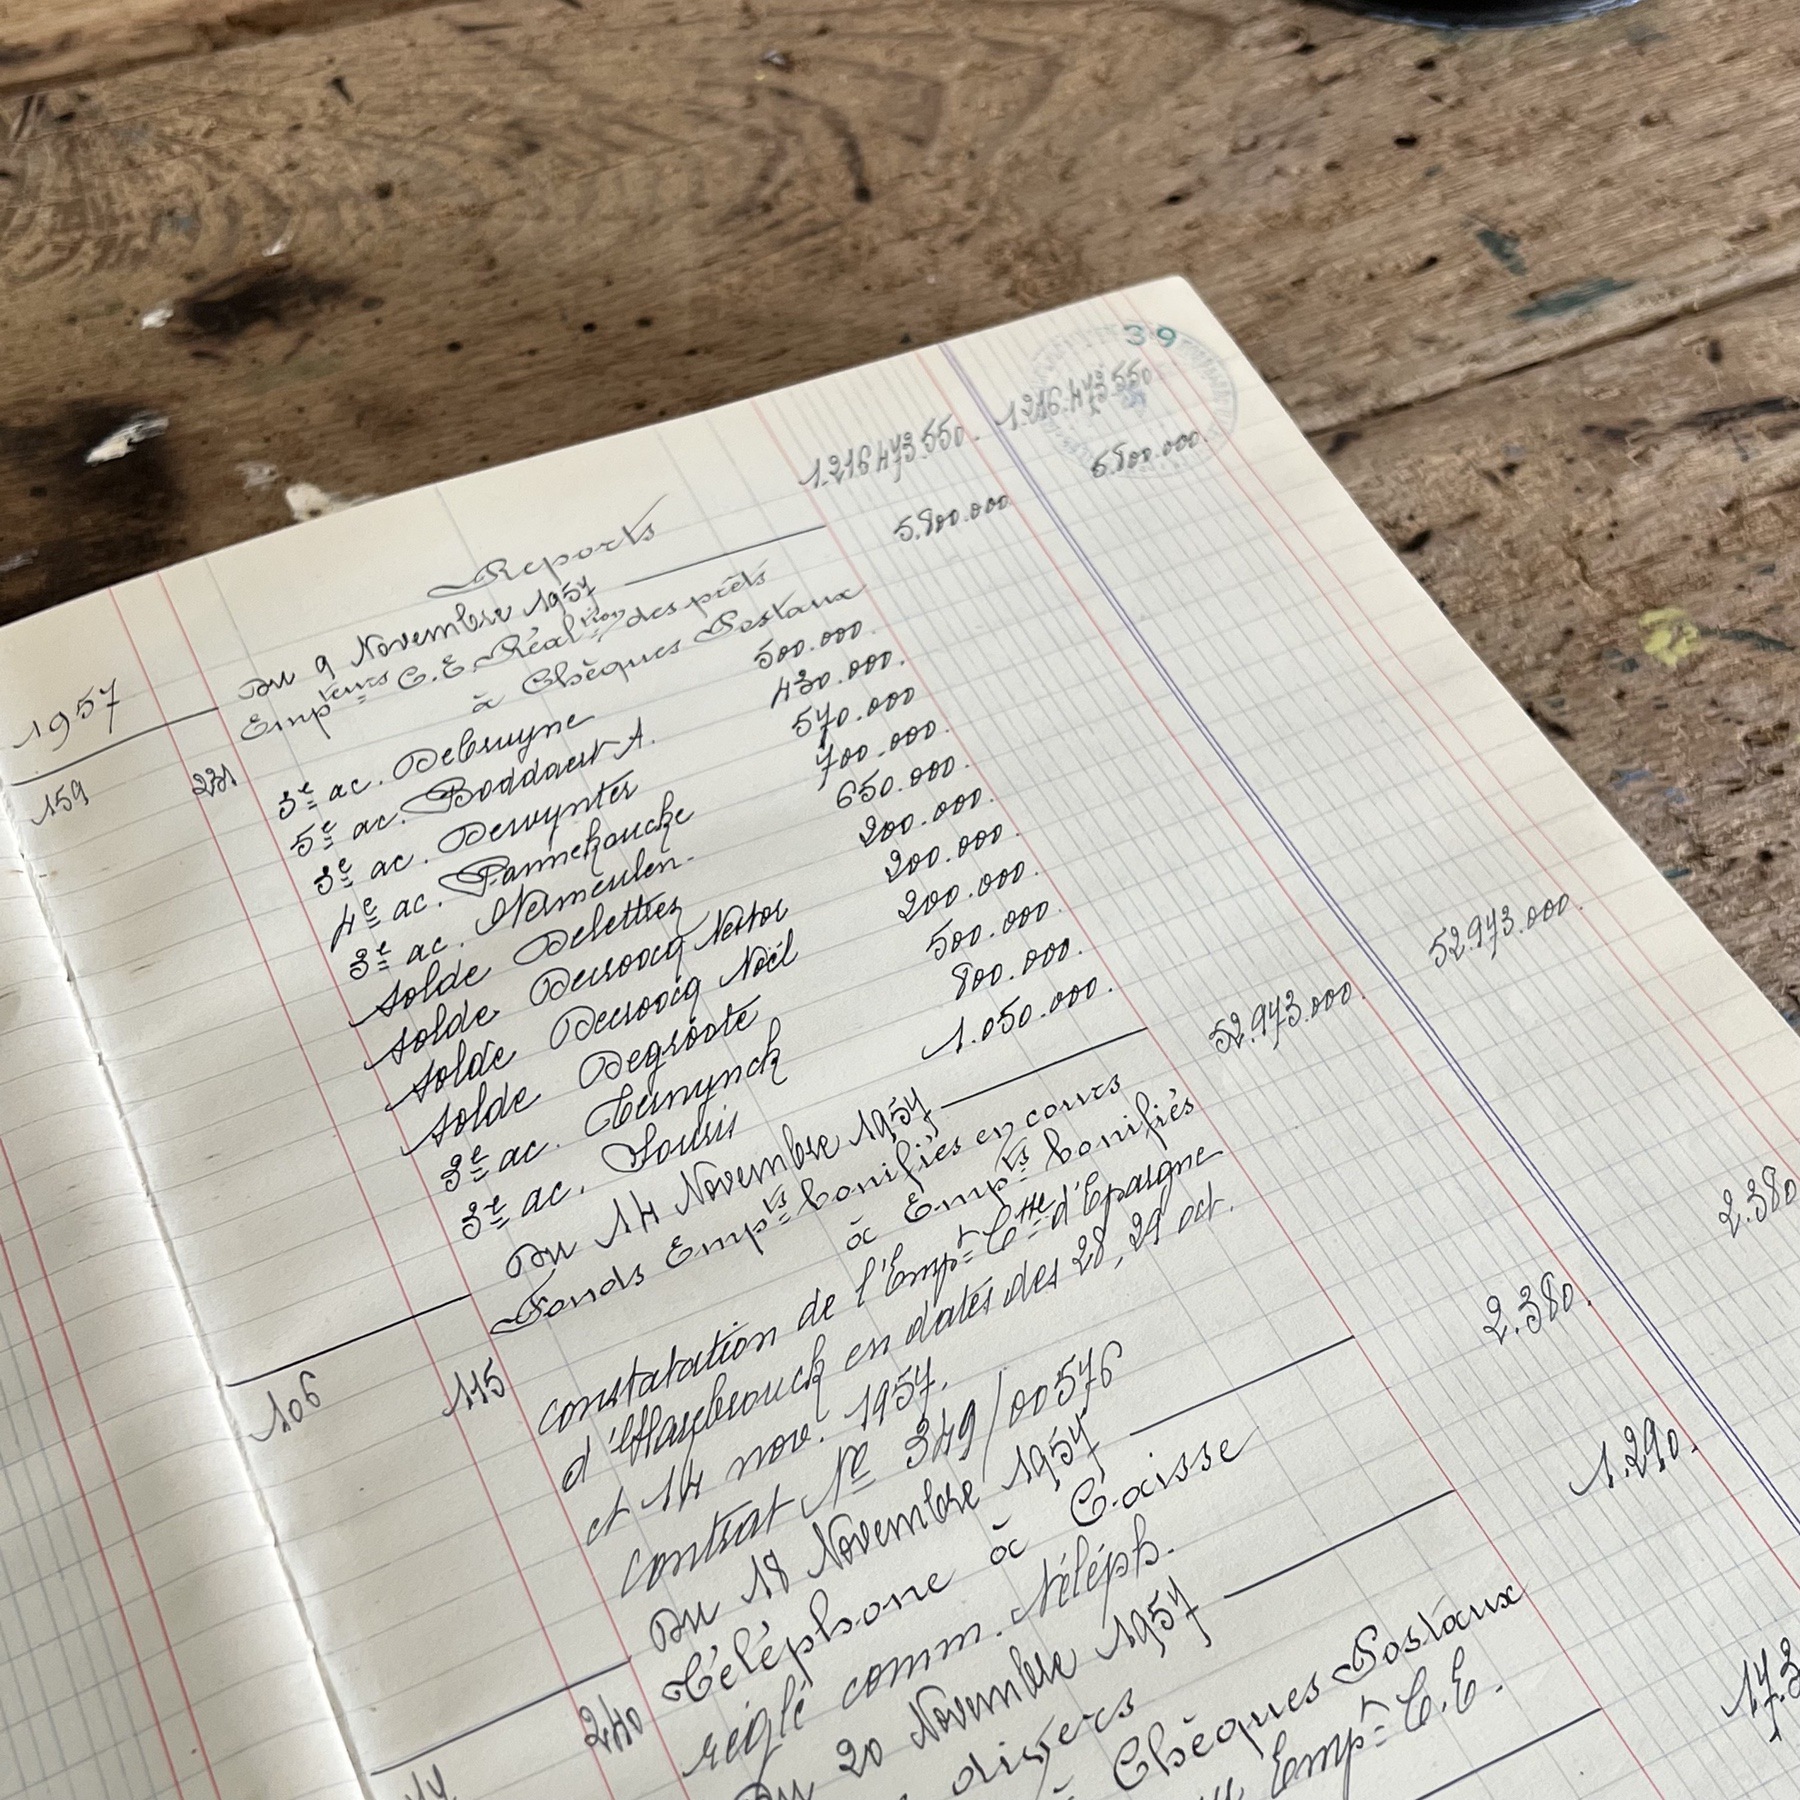 39
Reports 1.216.473.550. 1.216.473.550
1957 Du 9 Novembre 1957
159 231 Emp^teurs C.E. Réal^tion des prêts 5.800.000 5.800.000.
à Chèques Postaux
3e ac. Debruyne 500.000.
5e ac. Boddaert A. 430.000.
3e ac. Dewynter 570.000
4e ac. Pannekoucke 700.000.
3e ac. Vermeulen. 650.000.
solde Delettrez 200.000.
solde Decroocq Nestor 200.000.
solde Decroocq Noël 200.000.
solde Degroote 500.000.
3e ac. 800.000.
3e ac. Souris 1.050.000.
Du 14 Novembre 1957
106 115 Fonds Emp^ts bonifiés en cours 52.973.000. 52.973.000.
à Emp^ts bonifiés
constatation de l'Emp^t C^tte d'Epargne
d'Hazebrouck en dates des 28, 29 oct.
et 14 nov. 1957.
contrat No 349/00576
Du 18 Novembre 1957
240 Téléphone à Caisse 2.380. 2.380
réglé comm. téléph.
Du 20 Novembre 1957
divers 1.290.
Chèques Postaux
Emp^t C.E.